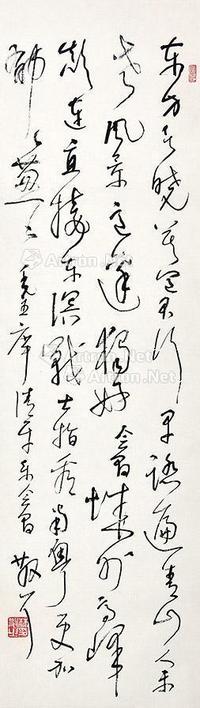 东方欲晓莫道君行早踏遍青山人未
老风景这边独好会昌城外高峰
颠连直接东溟战士指看南粤更加
郁々葱々毛主席清平乐会昌散耳